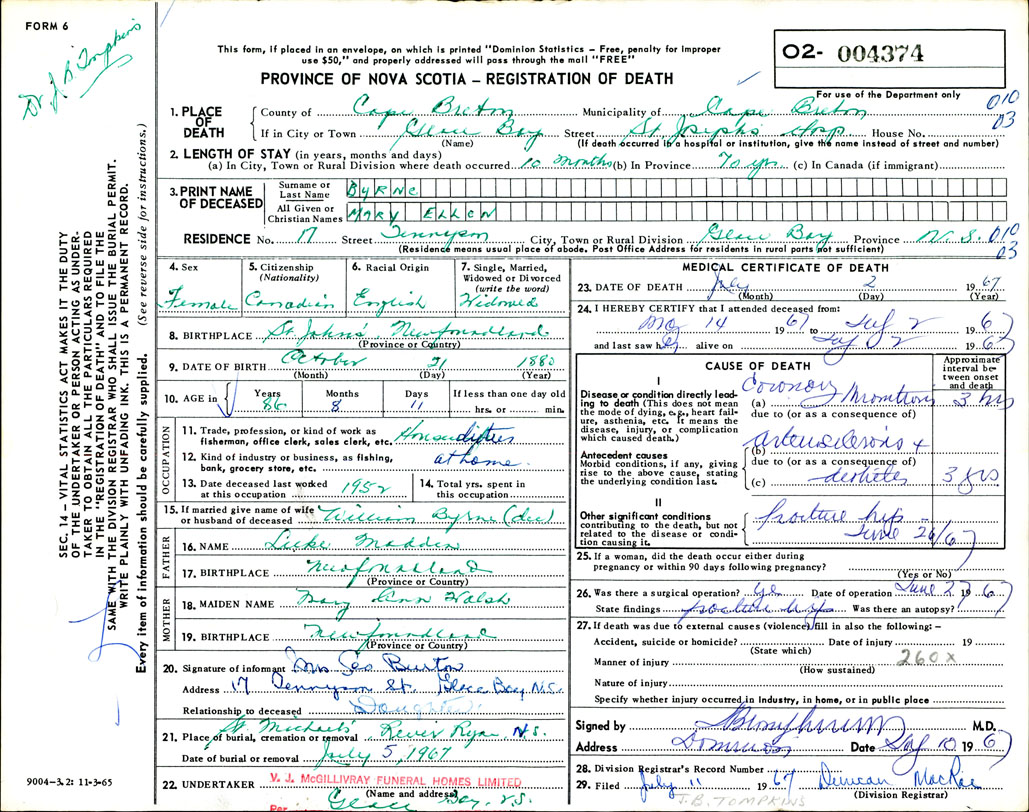 FORM 6
Dr. J B Tompkins
This form, if placed in an envelope, on which is printed "Dominion Statistics – Free, penalty for improper
use $50," and properly addressed will pass through the mail "FREE"
PROVINCE OF NOVA SCOTIA – REGISTRATION OF DEATH
02- 004374
For use of the Department only
010
03
1. PLACE OF DEATH
County of Cape Breton Municipality of Cape Breton
If in City or Town Glace Bay Street St Joseph's Hosp House No.
(Name) (If death occurred in a hospital or institution, give the name instead of street and number)
2. LENGTH OF STAY (in years, months and days)
(a) In City, Town or Rural Division where death occurred 10 months (b) In Province 70 yrs (c) In Canada (if immigrant)
3. PRINT NAME OF DECEASED
Surname or Last Name BYRNE
All Given or Christian Names MARY ELLEN
RESIDENCE No. 17 Street Tennyson City, Town or Rural Division Glace Bay Province N.S. 010
03
(Residence means usual place of abode. Post Office Address for residents in rural parts not sufficient)
4. Sex
Female
5. Citizenship
(Nationality)
Canadian
6. Racial Origin
English
7. Single, Married,
Widowed or Divorced
(write the word)
Widowed
8. BIRTHPLACE St. John's, Newfoundland
(Province or Country)
9. DATE OF BIRTH October 21 1880
(Month) (Day) (Year)
10. AGE in
Years Months Days If less than one day old
86 8 11 hrs. or min.
OCCUPATION
11. Trade, profession, or kind of work as
fisherman, office clerk, sales clerk, etc. House duties
12. Kind of industry or business, as fishing,
bank, grocery store, etc. at home.
13. Date deceased last worked
at this occupation 1952
14. Total yrs. spent in
this occupation
15. If married give name of wife
or husband of deceased William Byrne (dec)
FATHER
16. NAME Luke Madden
17. BIRTHPLACE Newfoundland
(Province or Country)
MOTHER
18. MAIDEN NAME Mary Ann Walsh
19. BIRTHPLACE Newfoundland
(Province or Country)
20. Signature of informant Mrs Geo Burton
Address 17 Tennyson St. Glace Bay N.S.
Relationship to deceased Daughter.
21. Place of burial, cremation or removal St. Michael's River Ryan N.S.
Date of burial or removal July 5, 1967
22. UNDERTAKER V. J. McGILLIVRAY FUNERAL HOMES LIMITED
(Name and address)
Per Glace Bay, N.S.
MEDICAL CERTIFICATE OF DEATH
23. DATE OF DEATH July 2 1967
(Month) (Day) (Year)
24. I HEREBY CERTIFY that I attended deceased from:
May 14 1967 to July 2 1967
and last saw her alive on July 2 1967
CAUSE OF DEATH
Approximate
interval be-
tween onset
and death
I
Disease or condition directly lead-
ing to death (This does not mean
the mode of dying, e.g., heart fail-
ure, asthenia, etc. It means the
disease, injury, or complication
which caused death.)
(a) Coronary Thrombosis 3 hrs
due to (or as a consequence of)
Antecedent causes
Morbid conditions, if any, giving
rise to the above cause, stating
the underlying condition last.
(b) arteriosclerosis +
due to (or as a consequence of)
(c) diabetes 3 yrs
II
Other significant conditions
contributing to the death, but not
related to the disease or condi-
tion causing it.
fracture hip
June 26/67
25. If a woman, did the death occur either during
pregnancy or within 90 days following pregnancy?
(Yes or No)
26. Was there a surgical operation? yes Date of operation June 27 1967
State findings fracture hip Was there an autopsy?
27. If death was due to external causes (violence) fill in also the following:–
Accident, suicide or homicide? Date of injury 19
(State which)
Manner of injury 260x
(How sustained)
Nature of injury
Specify whether injury occurred in industry, in home, or in public place
Signed by JB Tompkins M.D.
Address Dominion Date July 10 1967
28. Division Registrar's Record Number
29. Filed July 11 1967 Duncan MacRae
(Division Registrar)
J.B. TOMPKINS
SEC. 14 – VITAL STATISTICS ACT MAKES IT THE DUTY
OF THE UNDERTAKER OR PERSON ACTING AS UNDER-
TAKER TO OBTAIN ALL THE PARTICULARS REQUIRED
IN THE "REGISTRATION OF DEATH" AND TO FILE THE
SAME WITH THE DIVISION REGISTRAR WHO SHALL ISSUE THE BURIAL PERMIT.
WRITE PLAINLY WITH UNFADING INK. THIS IS A PERMANENT RECORD.
Every item of information should be carefully supplied. (See reverse side for instructions.)
9004-3.2: 11-3-65